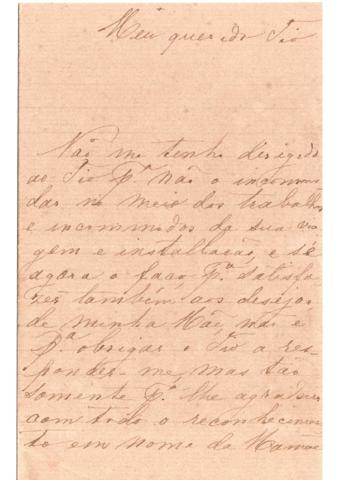 Meu querido Tio
Não me tenho dirigido
ao Tio pª não o incommo
dar no meio dos trabalhos
e incommodos da sua via
gem e installação, e só
agora o faço pª satisfa
zer também aos desejos
de minha Mãe, não é
pª obrigar o Tio a res-
ponder-me, mas tão
somente pª lhe agradecer
com todo o reconhecimen
to em nome da Mamãe